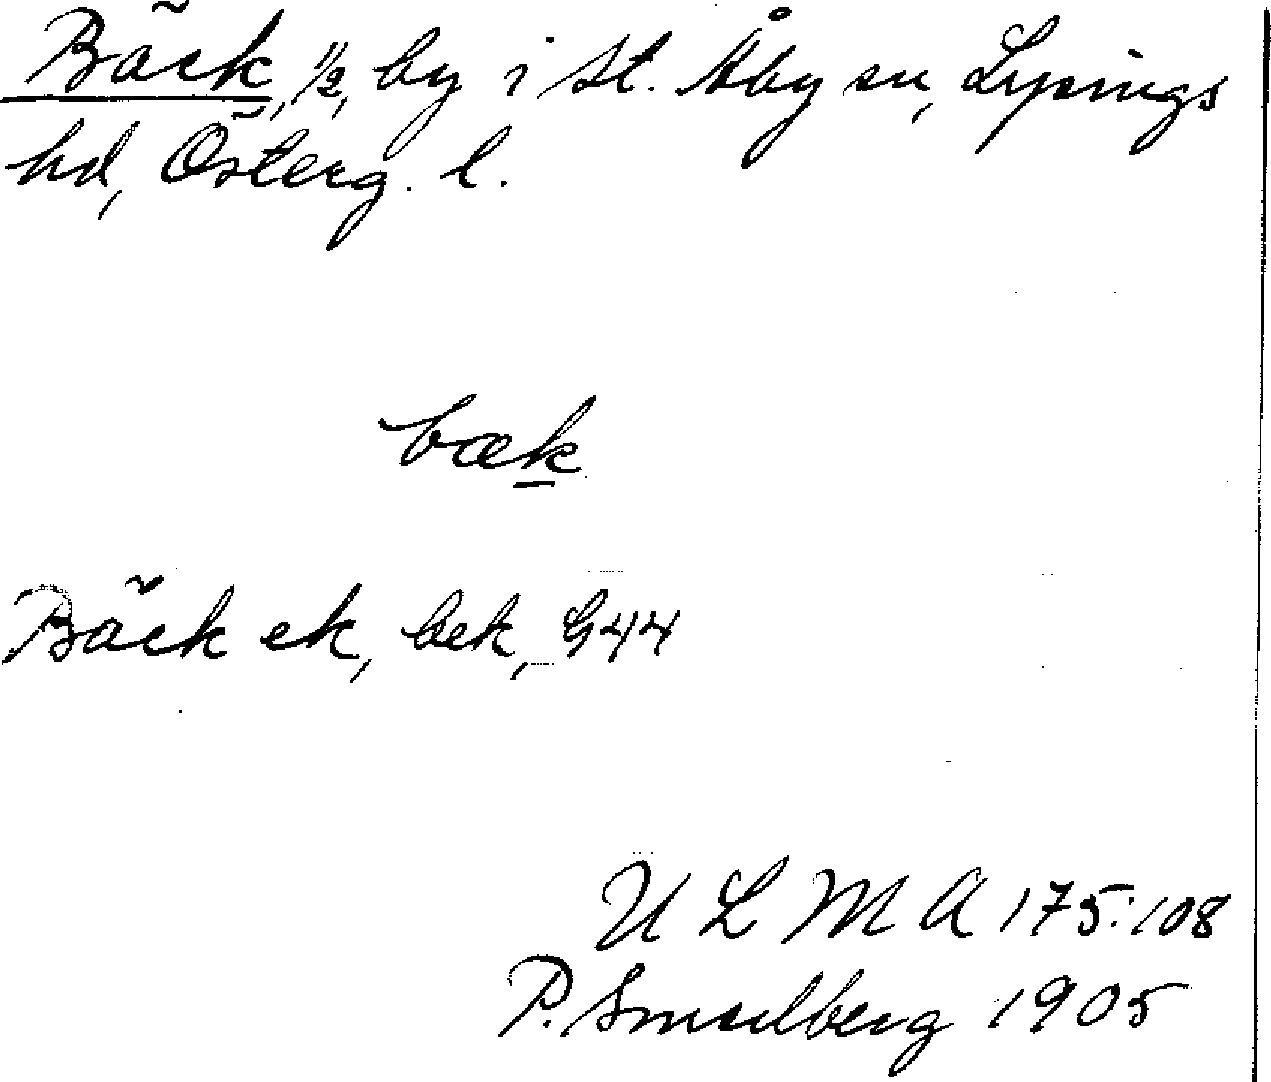 Bäck, 1/2, by i St. Åby sn, Lysings
hd, Österg. l.
bæk
Bäck ek, bek, G44
ULMA 175:108
P. Smedberg 1905